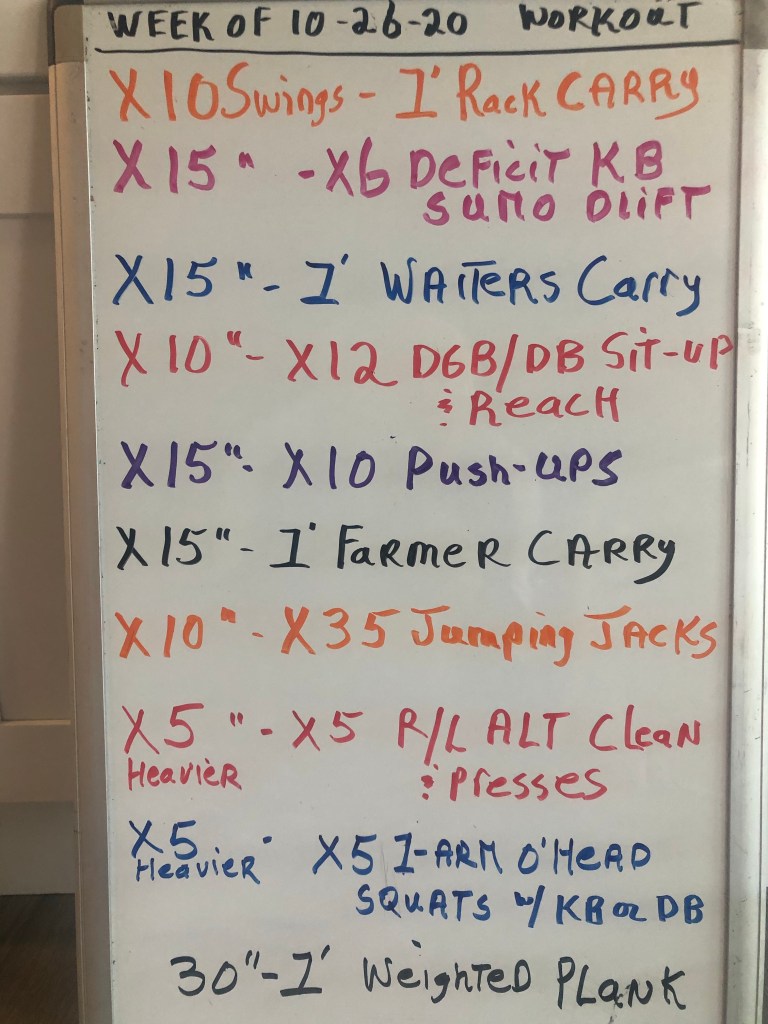 WEEK OF 10-26-20 WORKOUT
X10 Swings - 1' Rack CARRY
X15 " - X6 DeFiciT KB
SUMO DLIFT
X15 " - 1' WAITERS Carry
X10 " - X12 DGB/DB SiT-UP
& ReacH
X15 " - X10 Push-UPS
X15 " - 1' Farmer CARRy
X10 " - X35 Jumping JACKS
X5 " - X5 R/L ALT CleaN
Heavier & Presses
X5 - X5 1-ARM O'HeAD
Heavier SQUATS w/ KB or DB
30" - 1' WeighTeD PLaNK